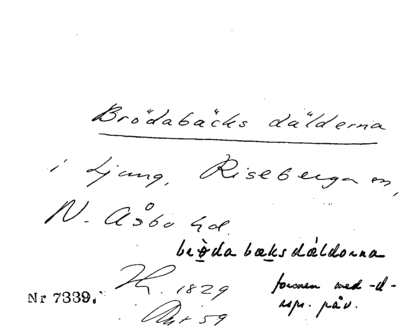 Brödabäcks dälderna
i Ljung, Riseberga sn,
N. Åsbo hd.
brøda bæks däldorna
Nr 7339.
1829
formen med -d-
59